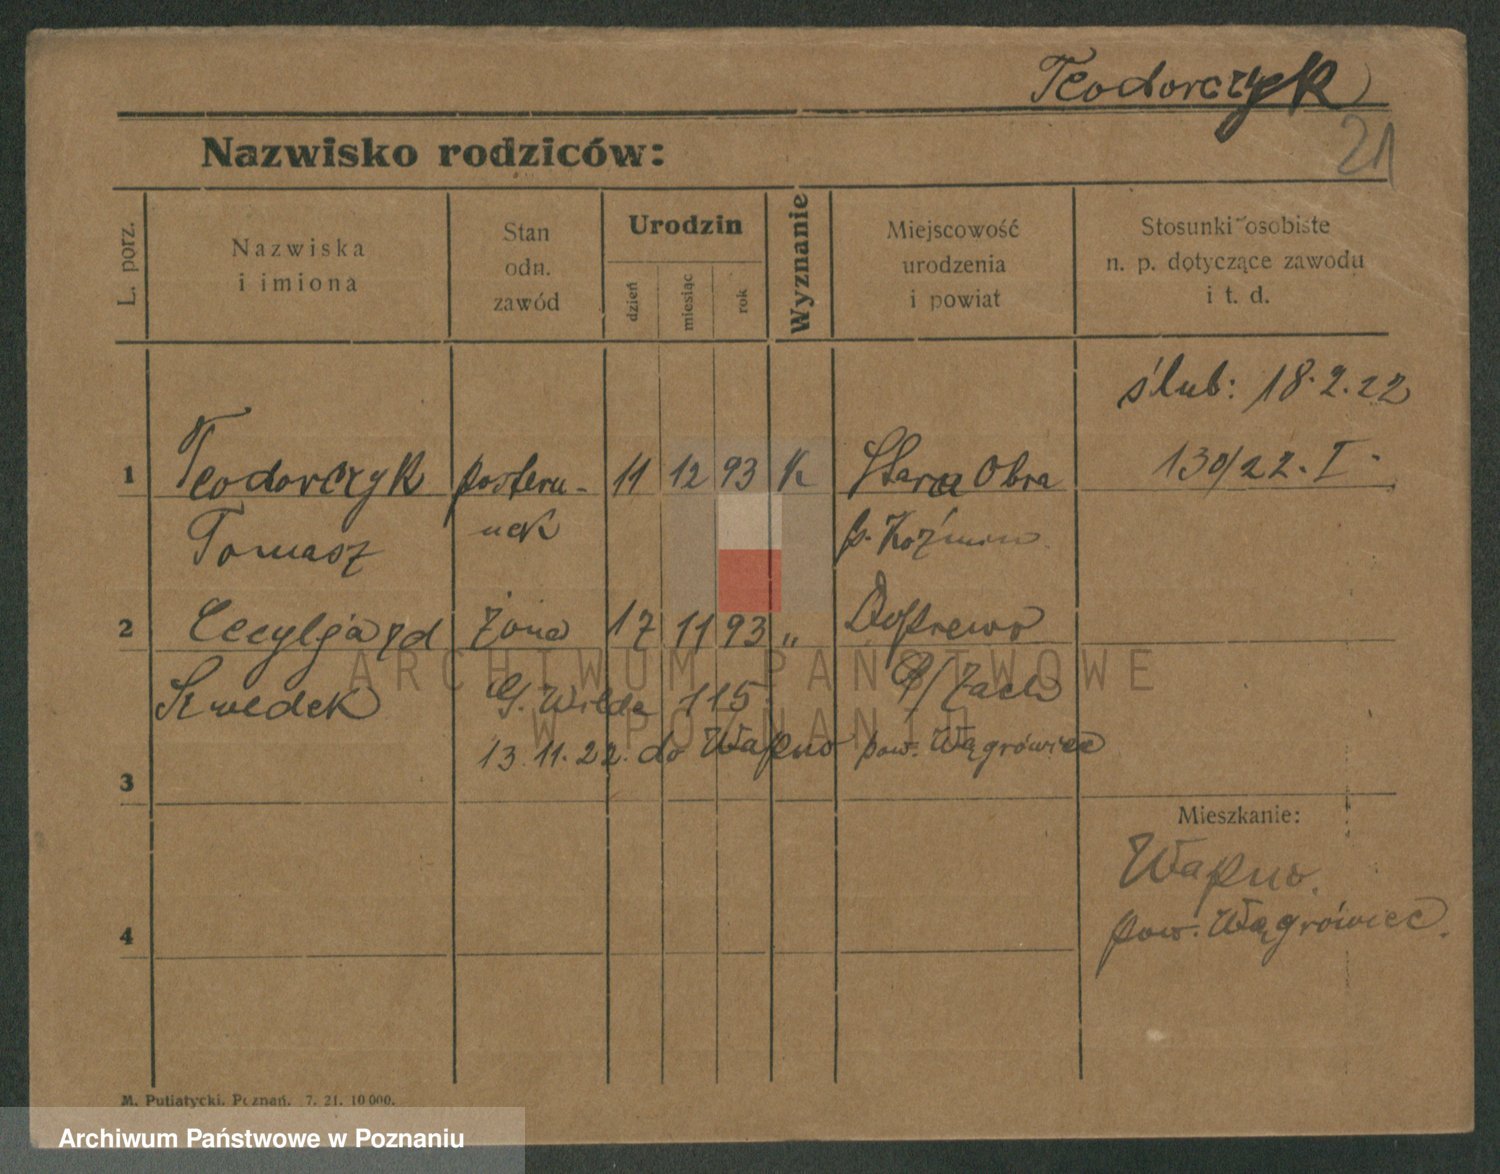 Teodorczyk
21
Nazwisko rodziców:
L. porz.
Nazwiska
i imiona
Stan
odn.
zawód
Urodzin
dzień
miesiąc
rok
Wyznanie
Miejscowość
urodzenia
i powiat
Stosunki osobiste
n. p. dotyczące zawodu
i t. d.
ślub: 18.2.22
1 Teodorczyk posteru- 11 12 93 K Stara Obra 130/22. I.
Tomasz nek p. Koźmin
2 Cecylja zd żona 17 11 93 „ Dopiewo
Kwedek G. Wilda 115. P/Zach
13.11.22. do Wapno pow. Wągrówiec
3
Mieszkanie:
Wapno.
pow. Wągrówiec.
4
M. Putiatycki. Poznań. 7. 21. 10 000.
ARCHIWUM PAŃSTWOWE
W POZNANIU
Archiwum Państwowe w Poznaniu